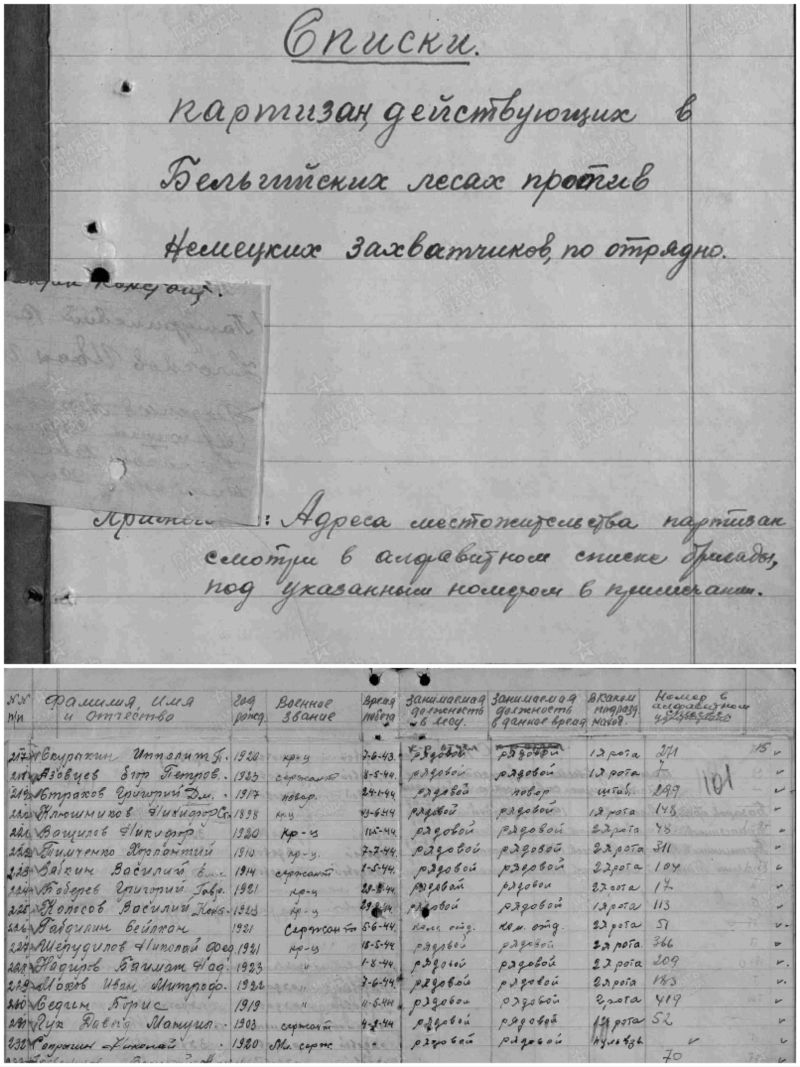 Списки.
партизан, действующих в
Бельгийских лесах против
Немецких захватчиков, по отрядно.
: Адреса местожительства партизан
смотри в алфавитном списке бригады,
под указанным номером в примечании.
NN п/п Фамилия, имя и отчество Год рожд. Военное звание Время побега Занимаемая должность в лесу. Занимаемая должность в данное время В каком подразд. наход. Номер в алфавитном
217 Скурыхин Ипполит П. 1920 кр-ц 7-6-43. рядовой рядовой 1я рота 271
218 Азовцев Егор Петров. 1923 сержант рядовой рядовой 1я рота 7
219 Страхов Григорий Дм. 1917 повар. 24-1-44. рядовой повар штаб. 299 101
220 Клюшников Никифор 1898 кр-ц рядовой рядовой 1я рота 148
221 Ващилов Никифор 1920 кр-ц рядовой рядовой 2я рота 48
222 Тимченко Харлантий 1910 кр-ц. 7-7-44. рядовой рядовой 2я рота 311
223 Василий 1914 сержант 1-5-44. рядовой рядовой 2я рота 104
224 Григорий Гавр. 1921 кр-ц рядовой рядовой 2я рота 17
225 Колосов Василий 1923 кр-ц рядовой рядовой 1я рота 113
226 Габдилин 1921 Сержант 5-6-44. ком. отд. ком. отд. 2я рота 51
227 Шерудилов Николай Фед. 1921 кр-ц 18-5-44. рядовой рядовой 2я рота 366
228 Надиров Баймат Над. 1923 " 1-8-44. рядовой рядовой 2я рота 209
229 Мохов Иван Митроф. 1922 " 7-6-44. рядовой рядовой 2я рота 183
230 Седин Борис 1919 " рядовой рядовой 2 рота 419
231 Гук Давид Мануил. 1903 сержант рядовой рядовой рота 52
232 Николай 1920 Мл. серж. рядовой рядовой
70